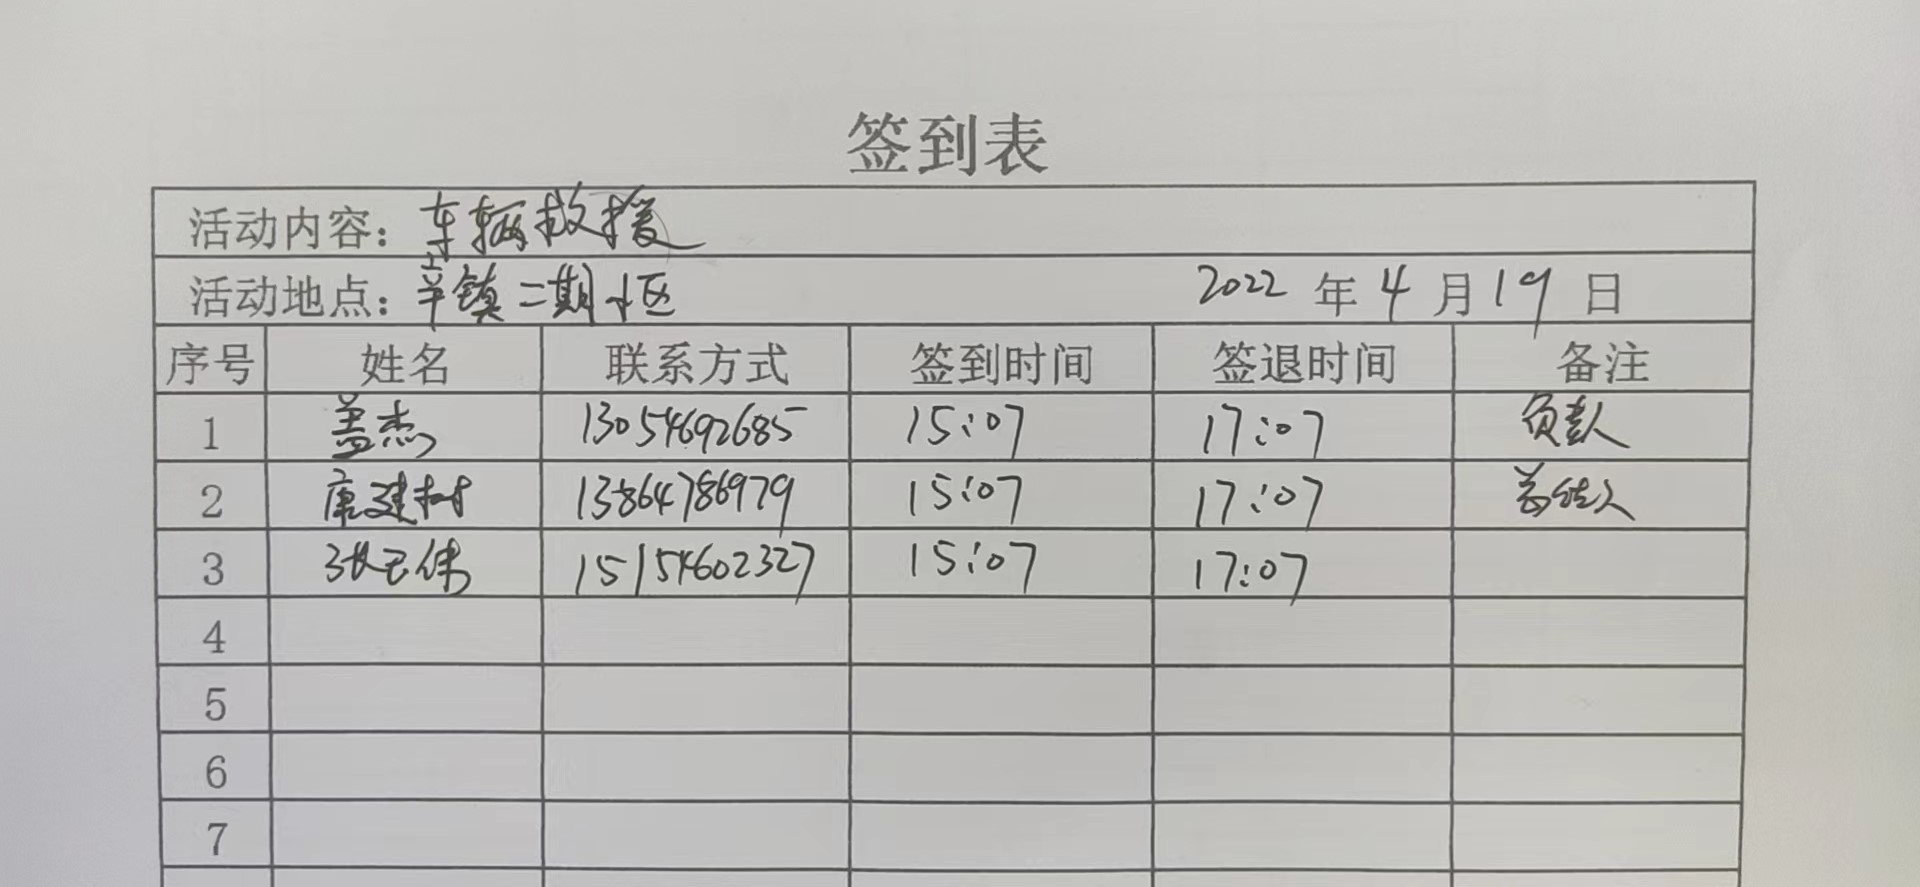 签到表
活动内容：车辆救援
活动地点：辛镇二期小区 2022 年 4 月 19 日
序号 姓名 联系方式 签到时间 签退时间 备注
1 盖杰 13054692685 15:07 17:07 负责人
2 唐建树 13864786979 15:07 17:07 总结人
3 张卫伟 15154602327 15:07 17:07
4
5
6
7